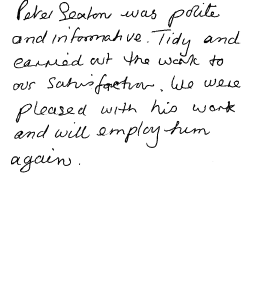 Peter Seaton was polite
and informative. Tidy and
carried out the work to
our satisfaction. We were
pleased with his work
and will employ him
again.